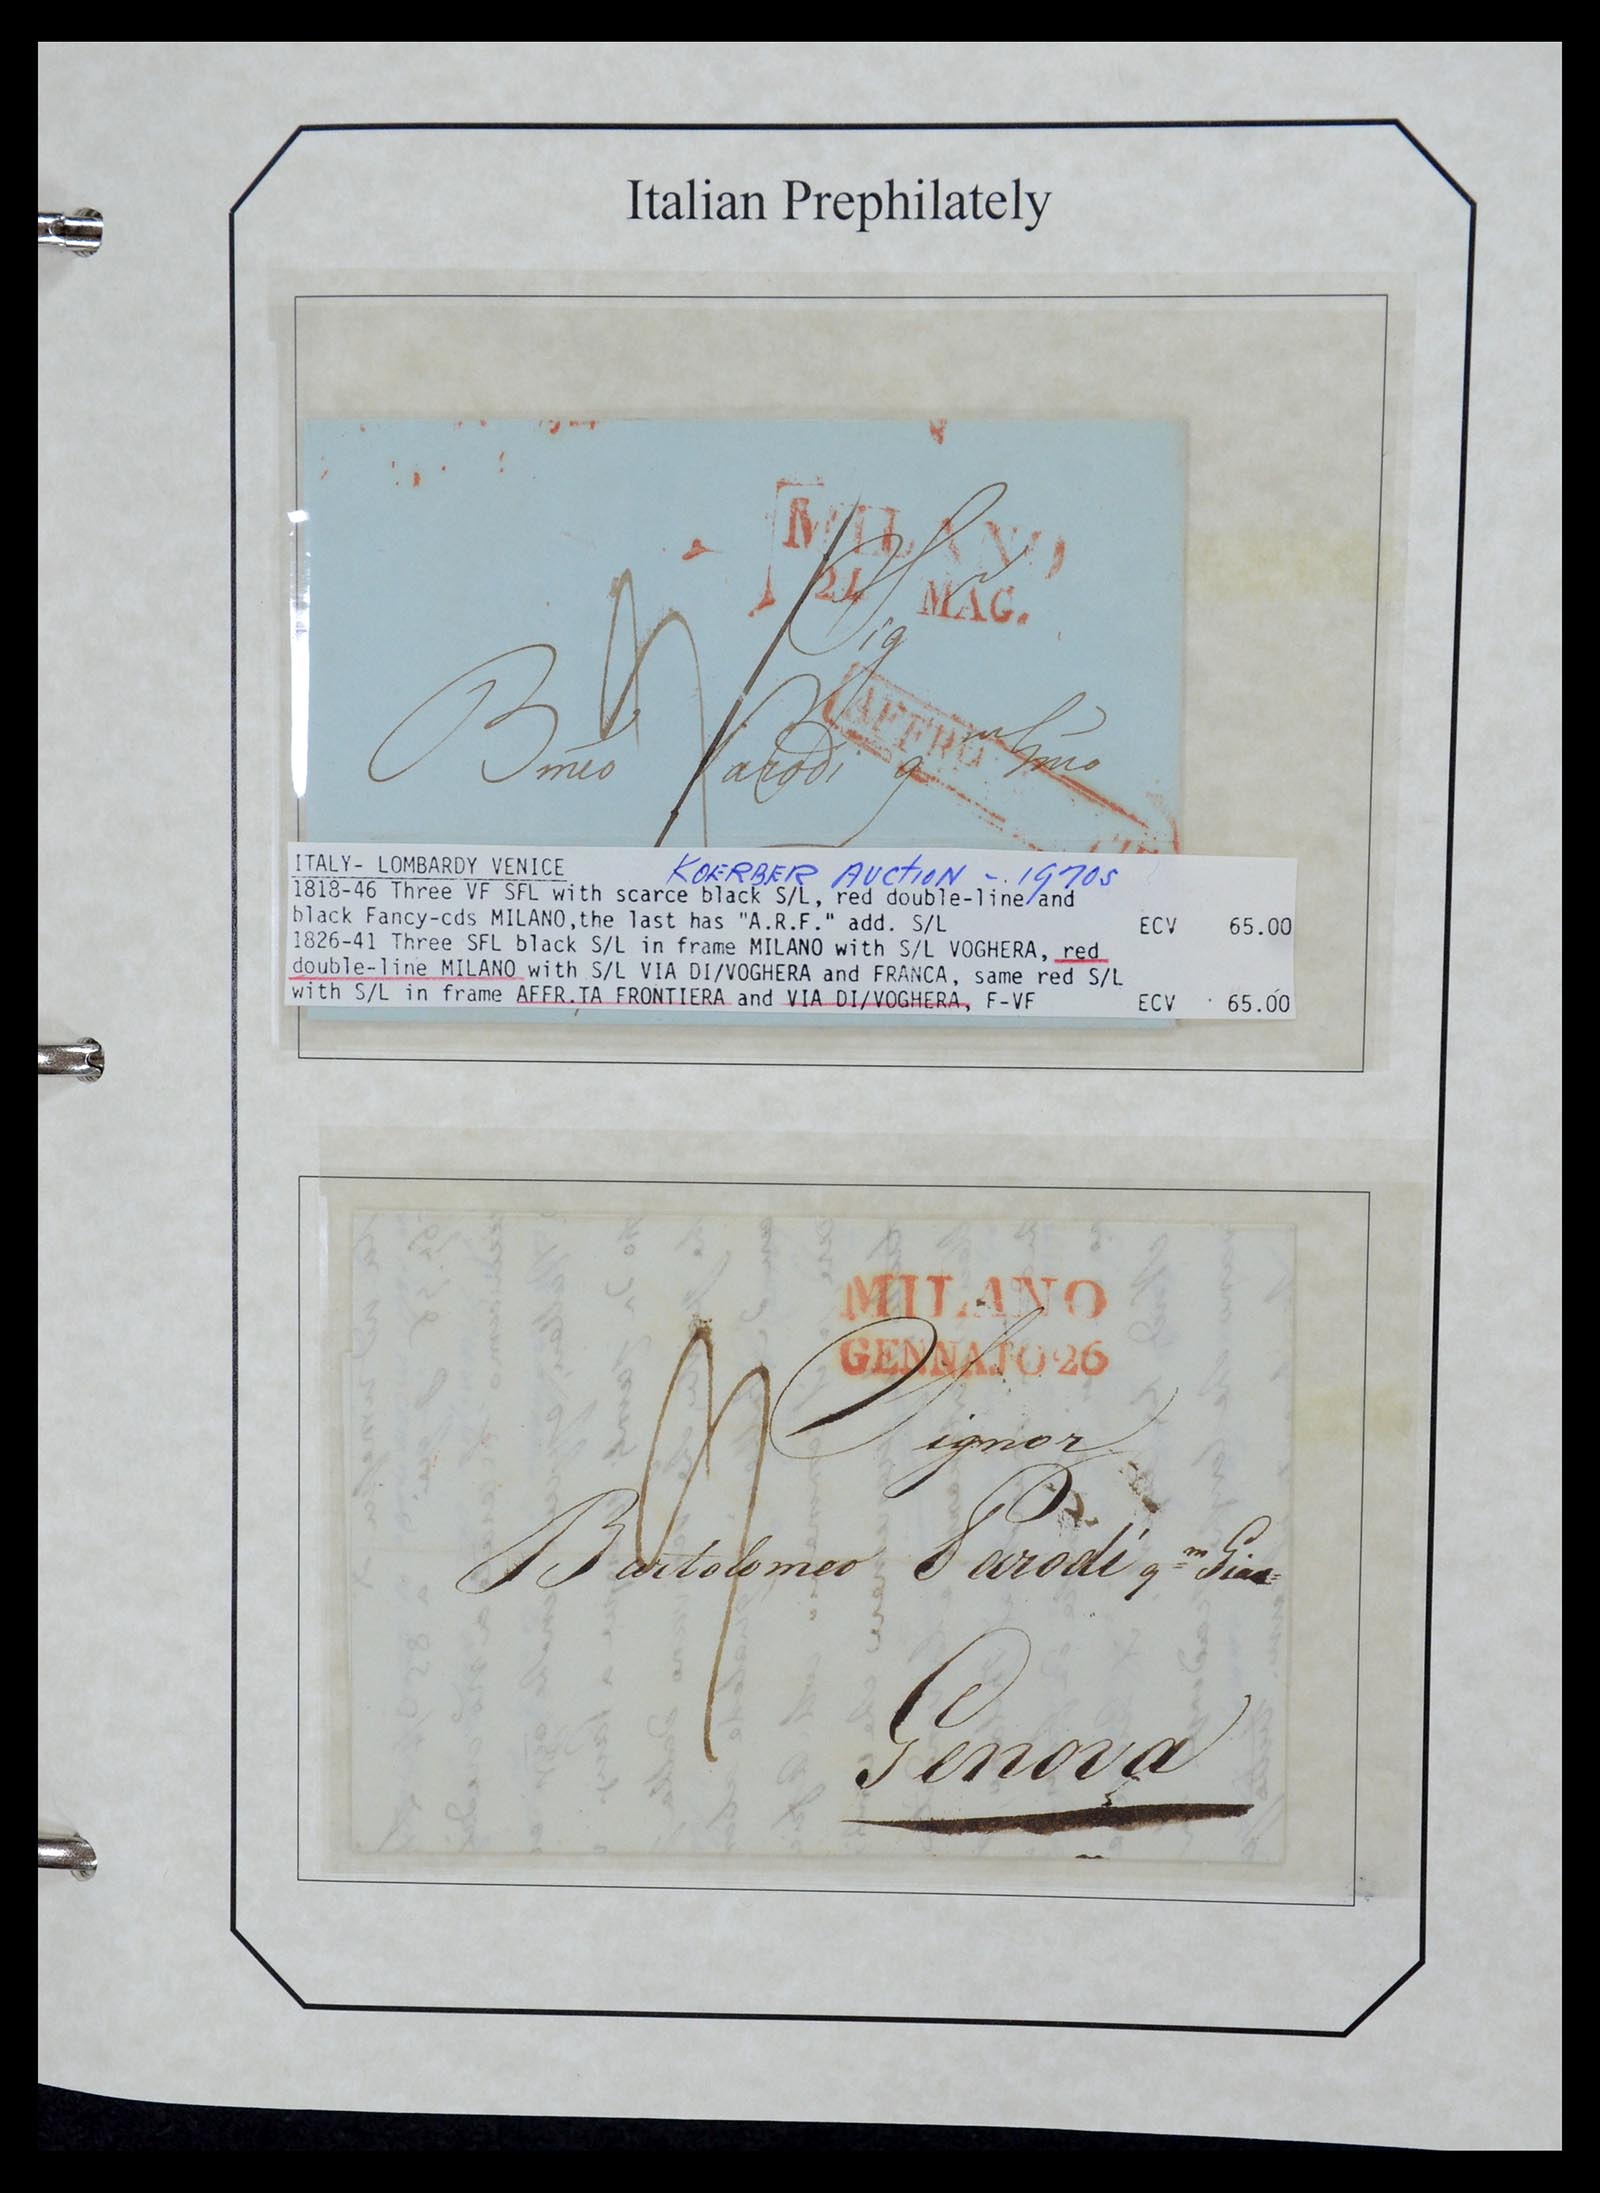 Italian Prephilately
MILANO
21 MAG.
Sig
Bmeo Parodi qm
AFFRA
ITALY- LOMBARDY VENICE KOERBER AUCTION - 1970s
1818-46 Three VF SFL with scarce black S/L, red double-line and
black Fancy-cds MILANO,the last has "A.R.F." add. S/L ECV 65.00
1826-41 Three SFL black S/L in frame MILANO with S/L VOGHERA, red
double-line MILANO with S/L VIA DI/VOGHERA and FRANCA, same red S/L
with S/L in frame AFFR.TA FRONTIERA and VIA DI/VOGHERA, F-VF ECV 65.00
MILANO
GENNAJO 26
Signor
Bartolomeo Parodi qm
Genova